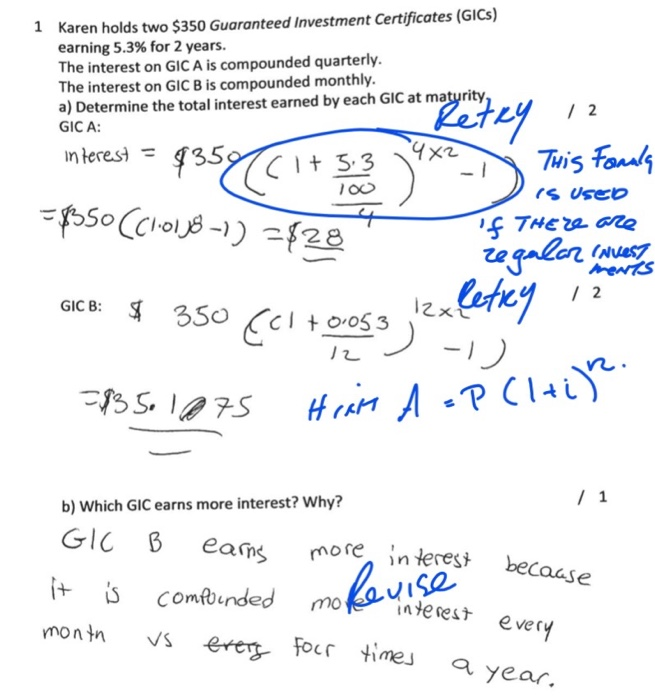 1 Karen holds two $350 Guaranteed Investment Certificates (GICs)
earning 5.3% for 2 years.
The interest on GIC A is compounded quarterly.
The interest on GIC B is compounded monthly.
a) Determine the total interest earned by each GIC at maturity.
Retry / 2
GIC A:
interest = $350((1 + 5.3/100/4)^4×2 - 1)
This Formula
is used
if there are
regular invest
ments
=$350((1.01)8 -1) = $28
Retry / 2
GIC B: $ 350 ((1 + 0.053/12)^12×2 -1)
=$35.175
Hint A = P(1+i)^n.
b) Which GIC earns more interest? Why? / 1
GIC B earns more interest because
it is compounded more interest every
Revise
month vs every four times a year.